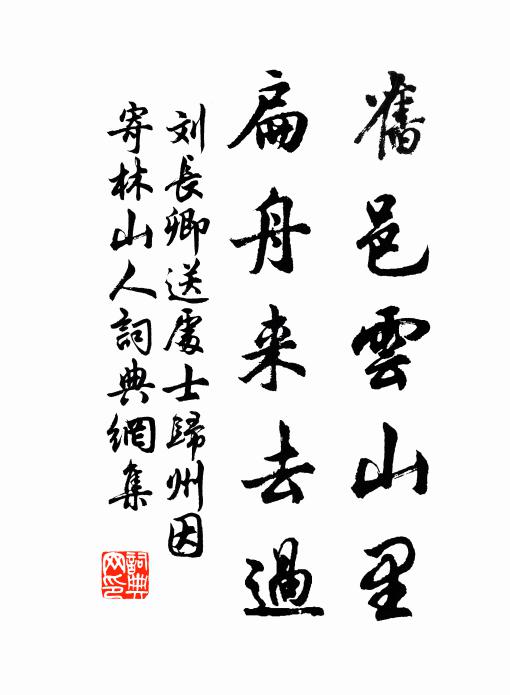 舊邑雲山里
扁舟来去過
刘長卿送處士歸州因
寄林山人詞典網集
詞典
网印